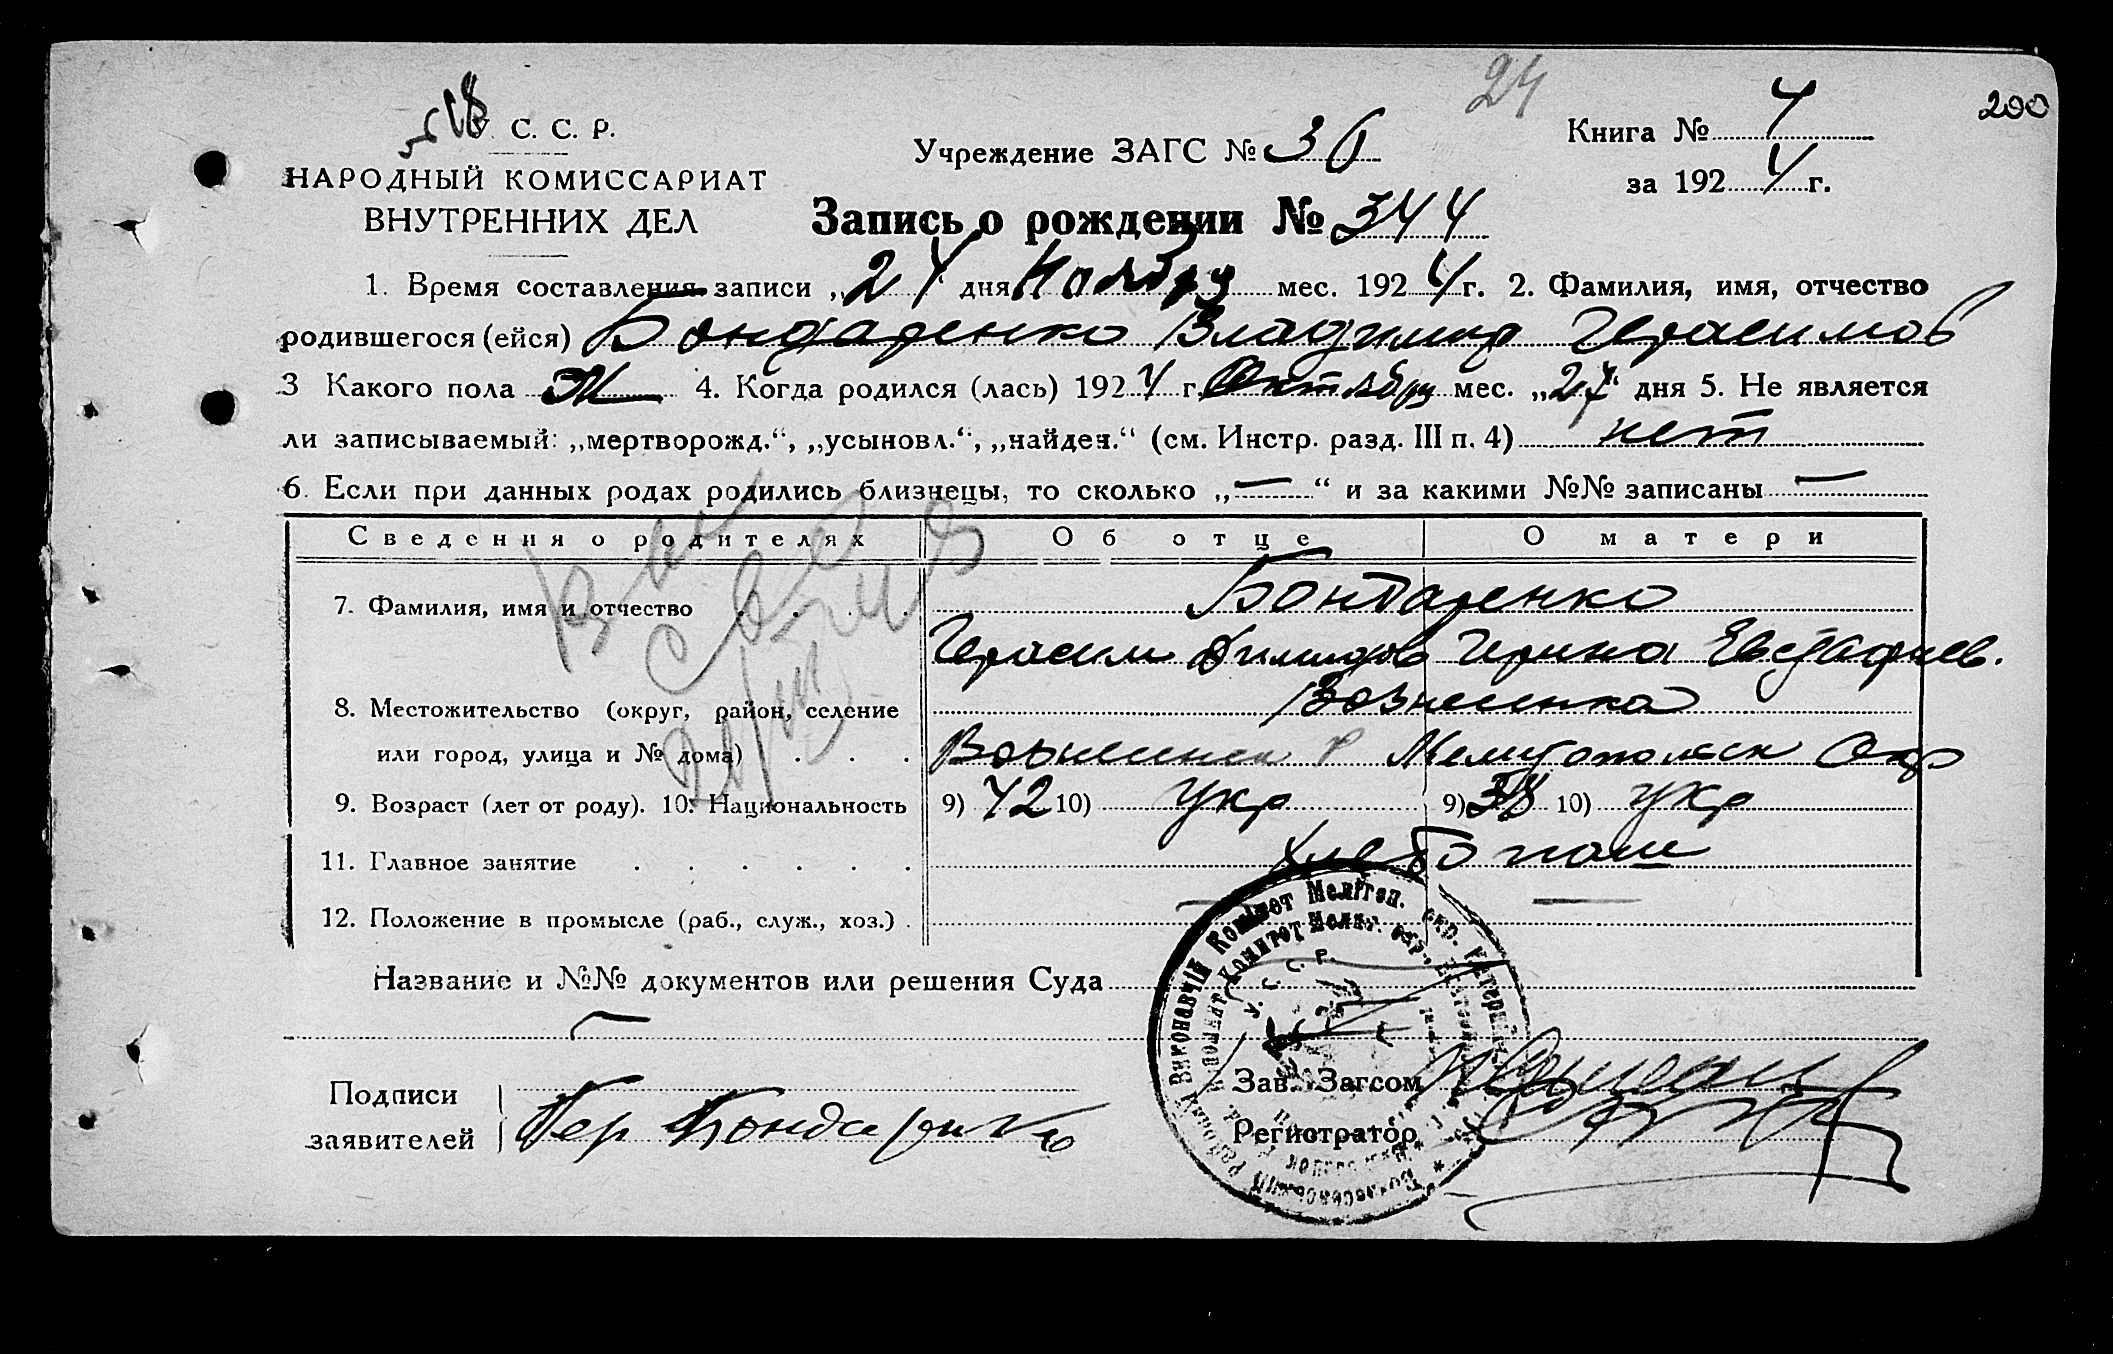 24
200
У. С. С. Р.
НАРОДНЫЙ КОМИССАРИАТ
ВНУТРЕННИХ ДЕЛ
Учреждение ЗАГС № 36
Книга № 4
за 1924 г.
Запись о рождении № 344
1. Время составления записи „24" дня Ноября мес. 1924 г. 2. Фамилия, имя, отчество
родившегося (ейся) Бондаренко Владимир Герасимов
3 Какого пола М 4. Когда родился (лась) 1924 г. Октября мес. „27" дня 5. Не является
ли записываемый: „мертворожд.", „усыновл.", „найден." (см. Инстр. разд. III п. 4) нет
6. Если при данных родах родились близнецы, то сколько „—" и за какими №№ записаны —
Сведения о родителях Об отце О матери
7. Фамилия, имя и отчество Бондаренко
Герасим Ирина Евстафиев.
8. Местожительство (округ, район, селение Вознесенка
или город, улица и № дома) Вознесенск р Мелитопольск Окр
9. Возраст (лет от роду). 10. Национальность 9) 42 10) укр 9) 38 10) укр
11. Главное занятие Хлебопаш
12. Положение в промысле (раб., служ., хоз.)
Название и №№ документов или решения Суда
Подписи
заявителей Гер Бондаренко
Зав. Загсом
Регистратор
У. С. С. Р.